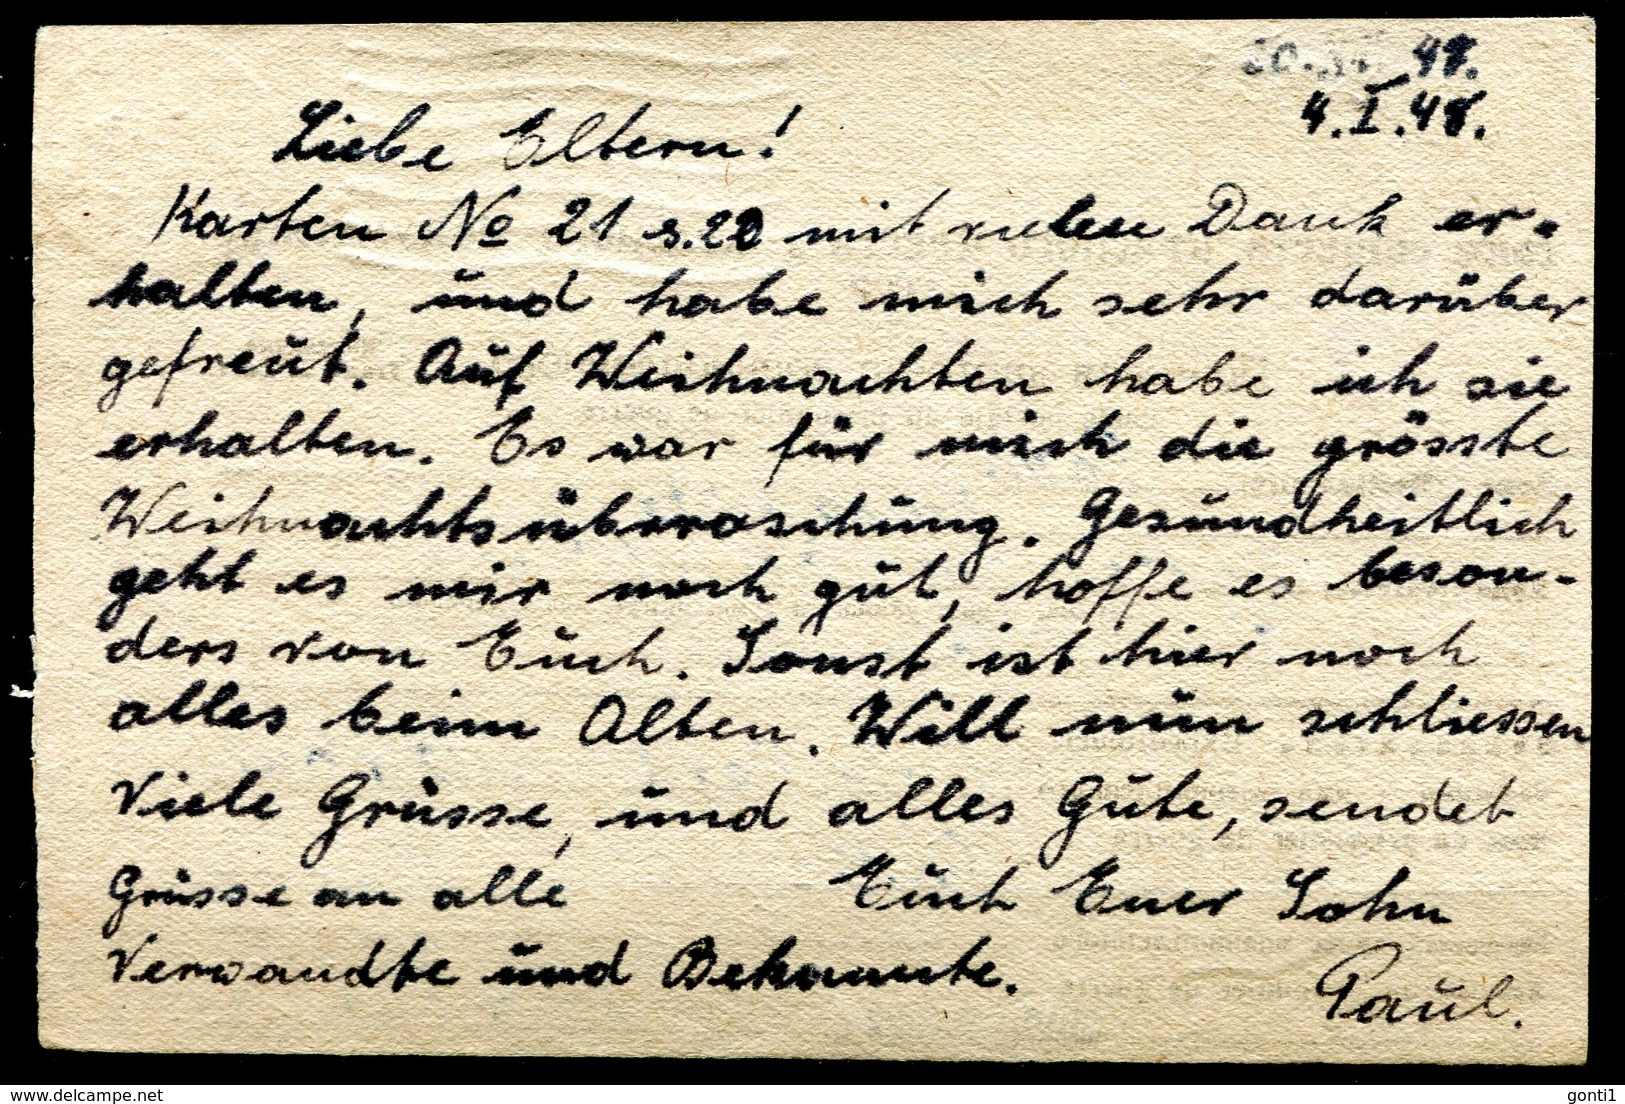 48.
4.I.48.
Liebe Eltern!
Karten No 21 s. 22 mit vielen Dank er-
halten, und habe mich sehr darüber
gefreut. Auf Weihnachten habe ich sie
erhalten. Es war für mich die grösste
Weihnachtsüberraschung. Gesundheitlich
geht es mir noch gut, hoffe es beson-
ders von Euch. Sonst ist hier noch
alles beim Alten. Will nun schliessen
Viele Grüsse, und alles Gute, sendet
Grüsse an alle Euch Euer Sohn
Verwandte und Bekannte. Paul.
delcampe.net
gonti1